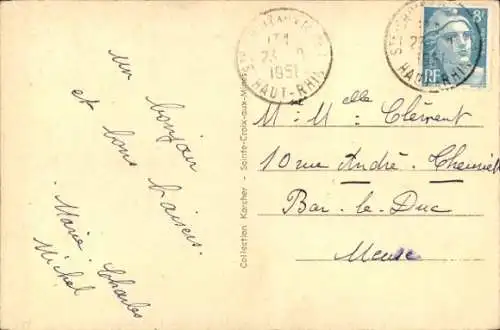 un bonjour
et bons baisers.
Marie. Charles
Michel
Collection Karcher - Sainte-Croix-aux-Mines
1951
HAUT-RHIN
1951
HAUT-RHIN
8F
RF
M: M:elle Clément
10 rue André. Chenier
Bar. le. Duc
Meuse